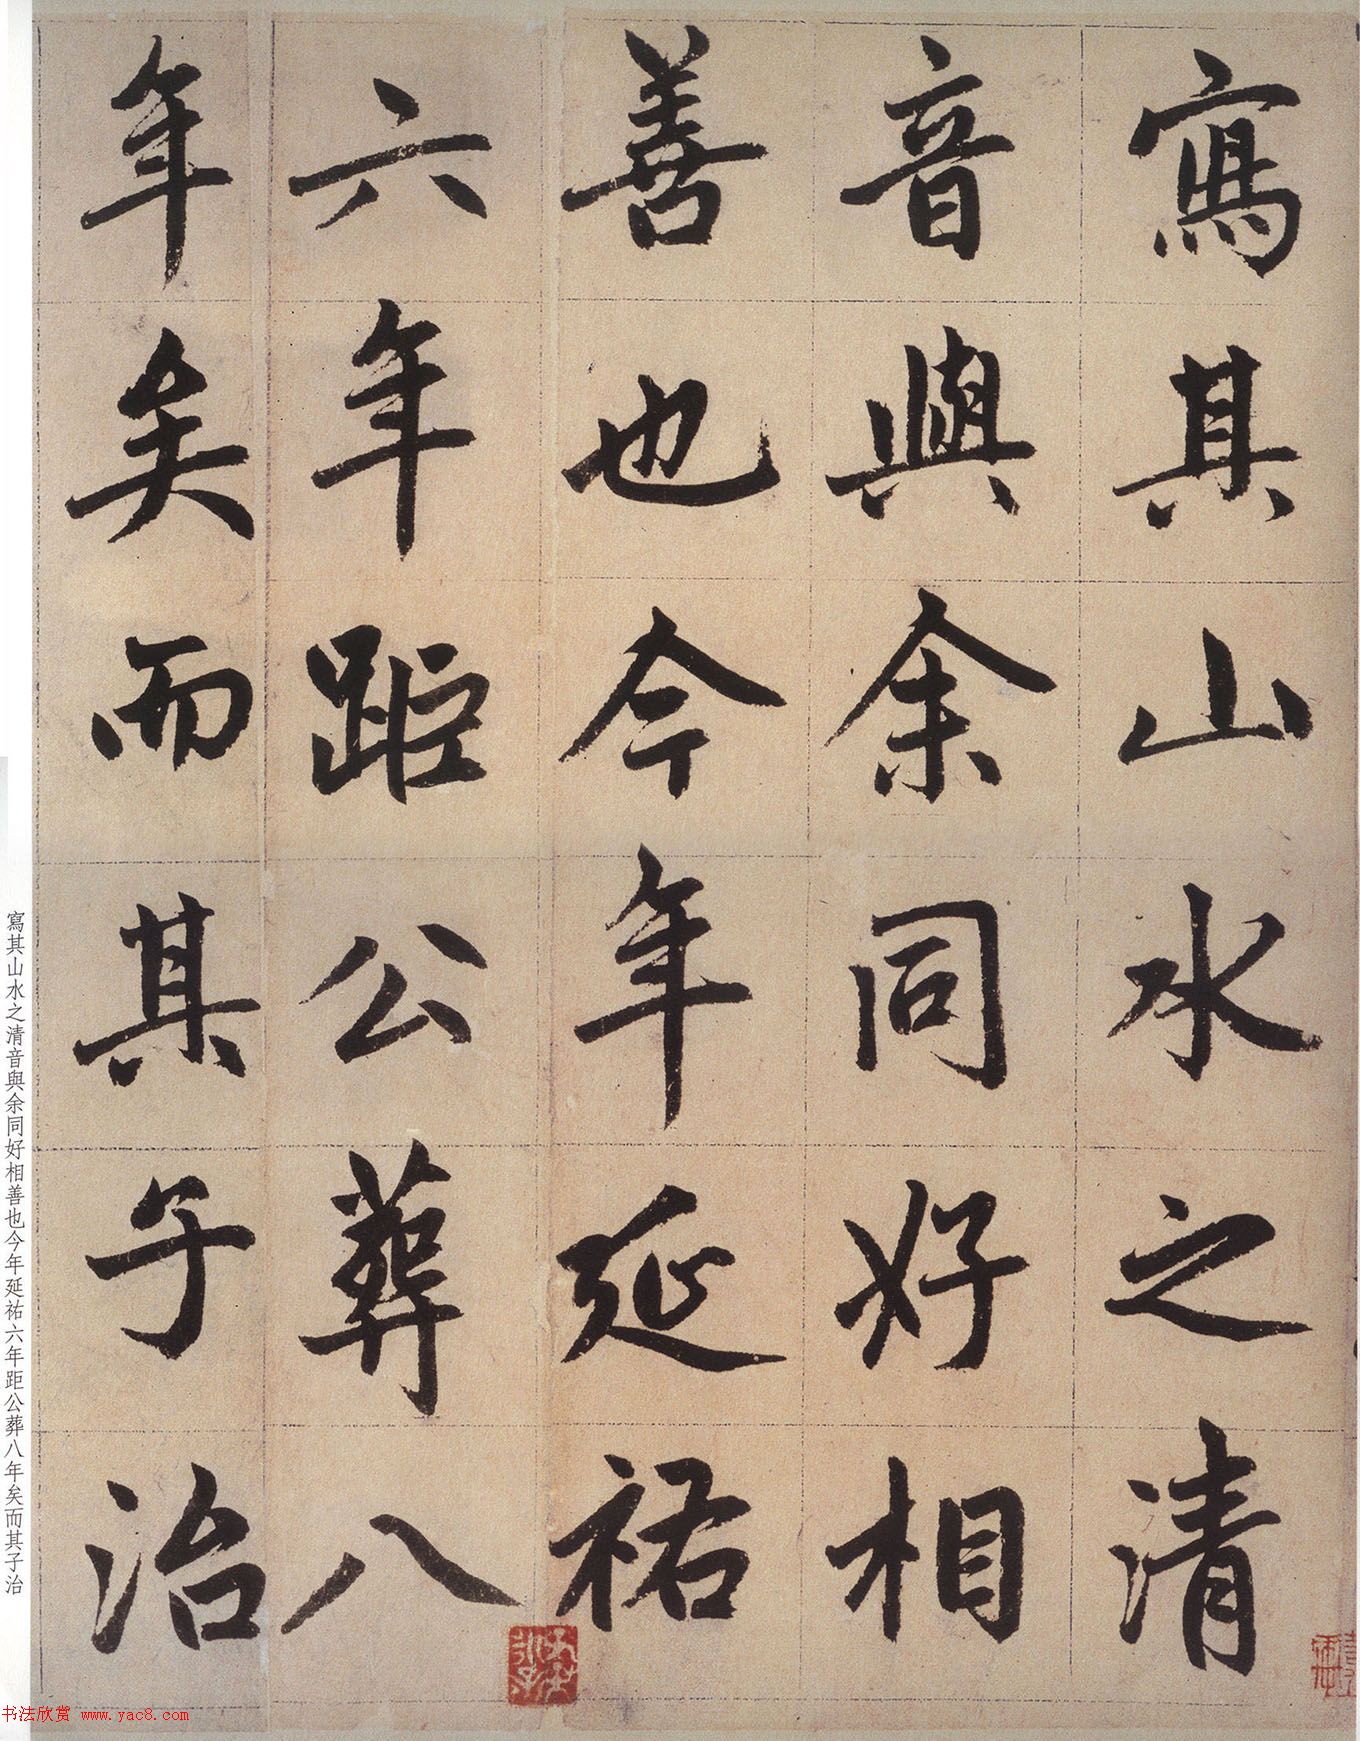 寫其山水之清
音與余同好相
善也今年延祐
六年距公葬八
年矣而其子治
寫其山水之清音與余同好相善也今年延祐六年距公葬八年矣而其子治
书法欣赏 www.yac8.com